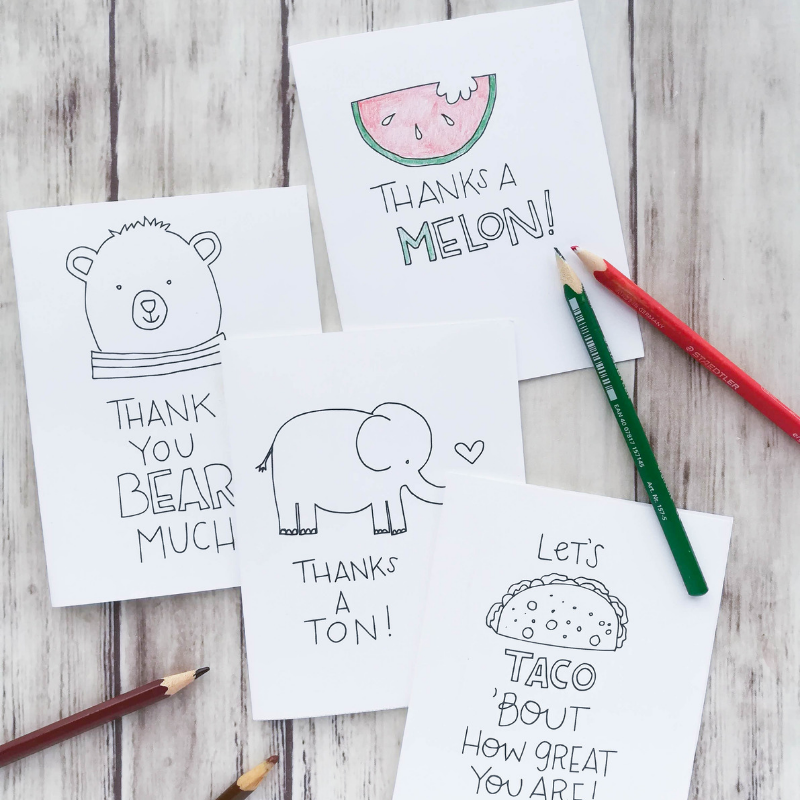 THANKS A
MELON!
THANK
YOU
BEAR
MUCH
THANKS
A
TON!
LET'S
TACO
'BOUT
HOW GREAT
YOU ARE!
GERMANY
STAEDTLER
EAN 40 07817 157145
Art. Nr. 157-5